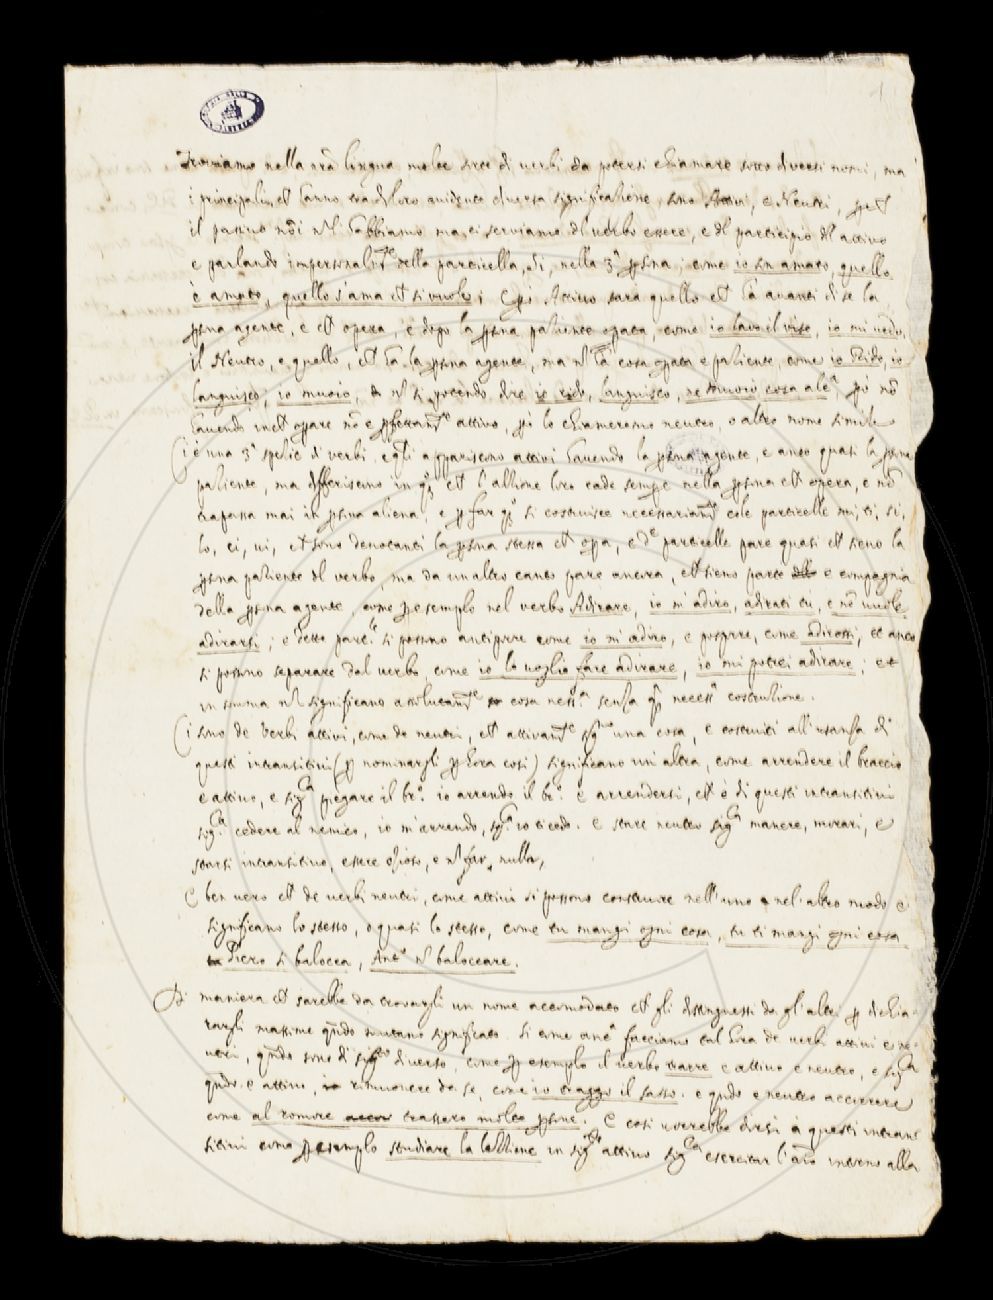 Troviamo nella nrã lingua molte sorte di verbi da potersi chiamare sotto diversi nomi, ma
i principali, et hanno tra di loro evidente diversa significatione, sono Attivi, e Neutri,
il passivo nõi nõ l'habbiamo ma ci serviamo del verbo essere, e del participio dell'attivo
e parlando impersonalmte della particella, si, nella 3a psona; come io son amato, quello
è amato, quello s'ama et si vuole; e Attivo sarà quello et ha avanti di se la
psona agente, e et opera, e dopo la psona patiente opata, come io lavo il viso, io mi vedo,
il Neutro, e quello, et ha la psona agente, ma nõ ha cosa opata e patiente, come io Rido, io
languisco, io muoio, nõ si potendo dire io rido, languisco, ne muoio cosa alca, nõ
havendo opare nõ e attivo, lo chiameremo neutro, o altro nome simile
Ci è una 3a spetie di verbi, e appariscono attivi havendo la psona agente, e anco quasi la psona
patiente, ma differiscono in et l'attione loro cade sempre nella psona et opera, e nõ
trapassa mai in psona aliena, e p far si costruisce necessariamte cole particelle mi, ti, si,
lo, ci, vi, et sono denotanti la psona stessa et opa, e particelle pare quasi et sieno la
psona patiente del verbo, ma da un altro canto pare ancora, et sieno parte e compagnia
della psona agente, come p esemplo nel verbo Adirare, io m'adiro, adirati tu, e nõ vuole
adirarsi; e dette si possono anteporre come io m'adiro, e posporre, come adirossi, et anco
si possono separare dal verbo, come io lo voglio fare adirare, io mi potrei adirare; et
in somma nõ significano assolutamte cosa senza costrutione.
Ci sono de verbi attivi, come de neutri, et attivamte una cosa, e costruiti all'usanza di
questi intransitivi (p nominargli p hora cosi) significano un altra, come arrendere il braccio
e attivo, e piegare il bro. io arrendo il bro. e arrendersi, et è di questi intransitivi
cedere al nemico, io m'arrendo, io ti cedo. e stare neutro manere, morari, e
starsi intransitivo, essere otioso, e nõ far nulla,
E ben vero et de verbi neutri, come attivi si possono construere nell'uno e nel'altro modo e
significano lo stesso, o quasi lo stesso, come tu mangi ogni cosa, tu ti mangi ogni cosa
Piero si balocca, Anto. nõ baloccare.
Di maniera et sarebbe da trovargli un nome accomodato et gli distinguessi da gl'altri p dichia-
rargli massime qñdo mutano significato. Si come facciamo talhora de verbi attivi e ne-
utri, qñdo sono di diverso, come p esemplo il verbo trarre e attivo e neutro, e
qñdo e attivo, rimuovere da se, come io traggo il sasso. e qñdo e neutro accorrere
come al romore trassero molte psone. E cosi vorrebbe dirsi à questi intran
sitivi come p esemplo studiare la lettione in attivo esercitar intorno alla